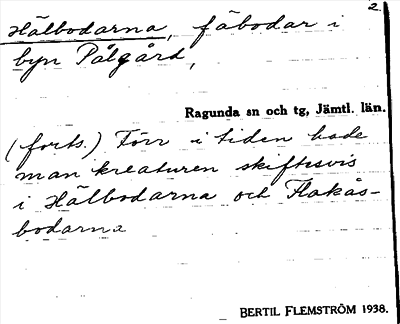 2.
Hälbodarna, fäbodar i
byn Pålgård,
Ragunda sn och tg, Jämtl. län.
(forts.) Förr i tiden hade
man kreaturen skiftesvis
i Hälbodarna och Flakås-
bodarna
BERTIL FLEMSTRÖM 1938.